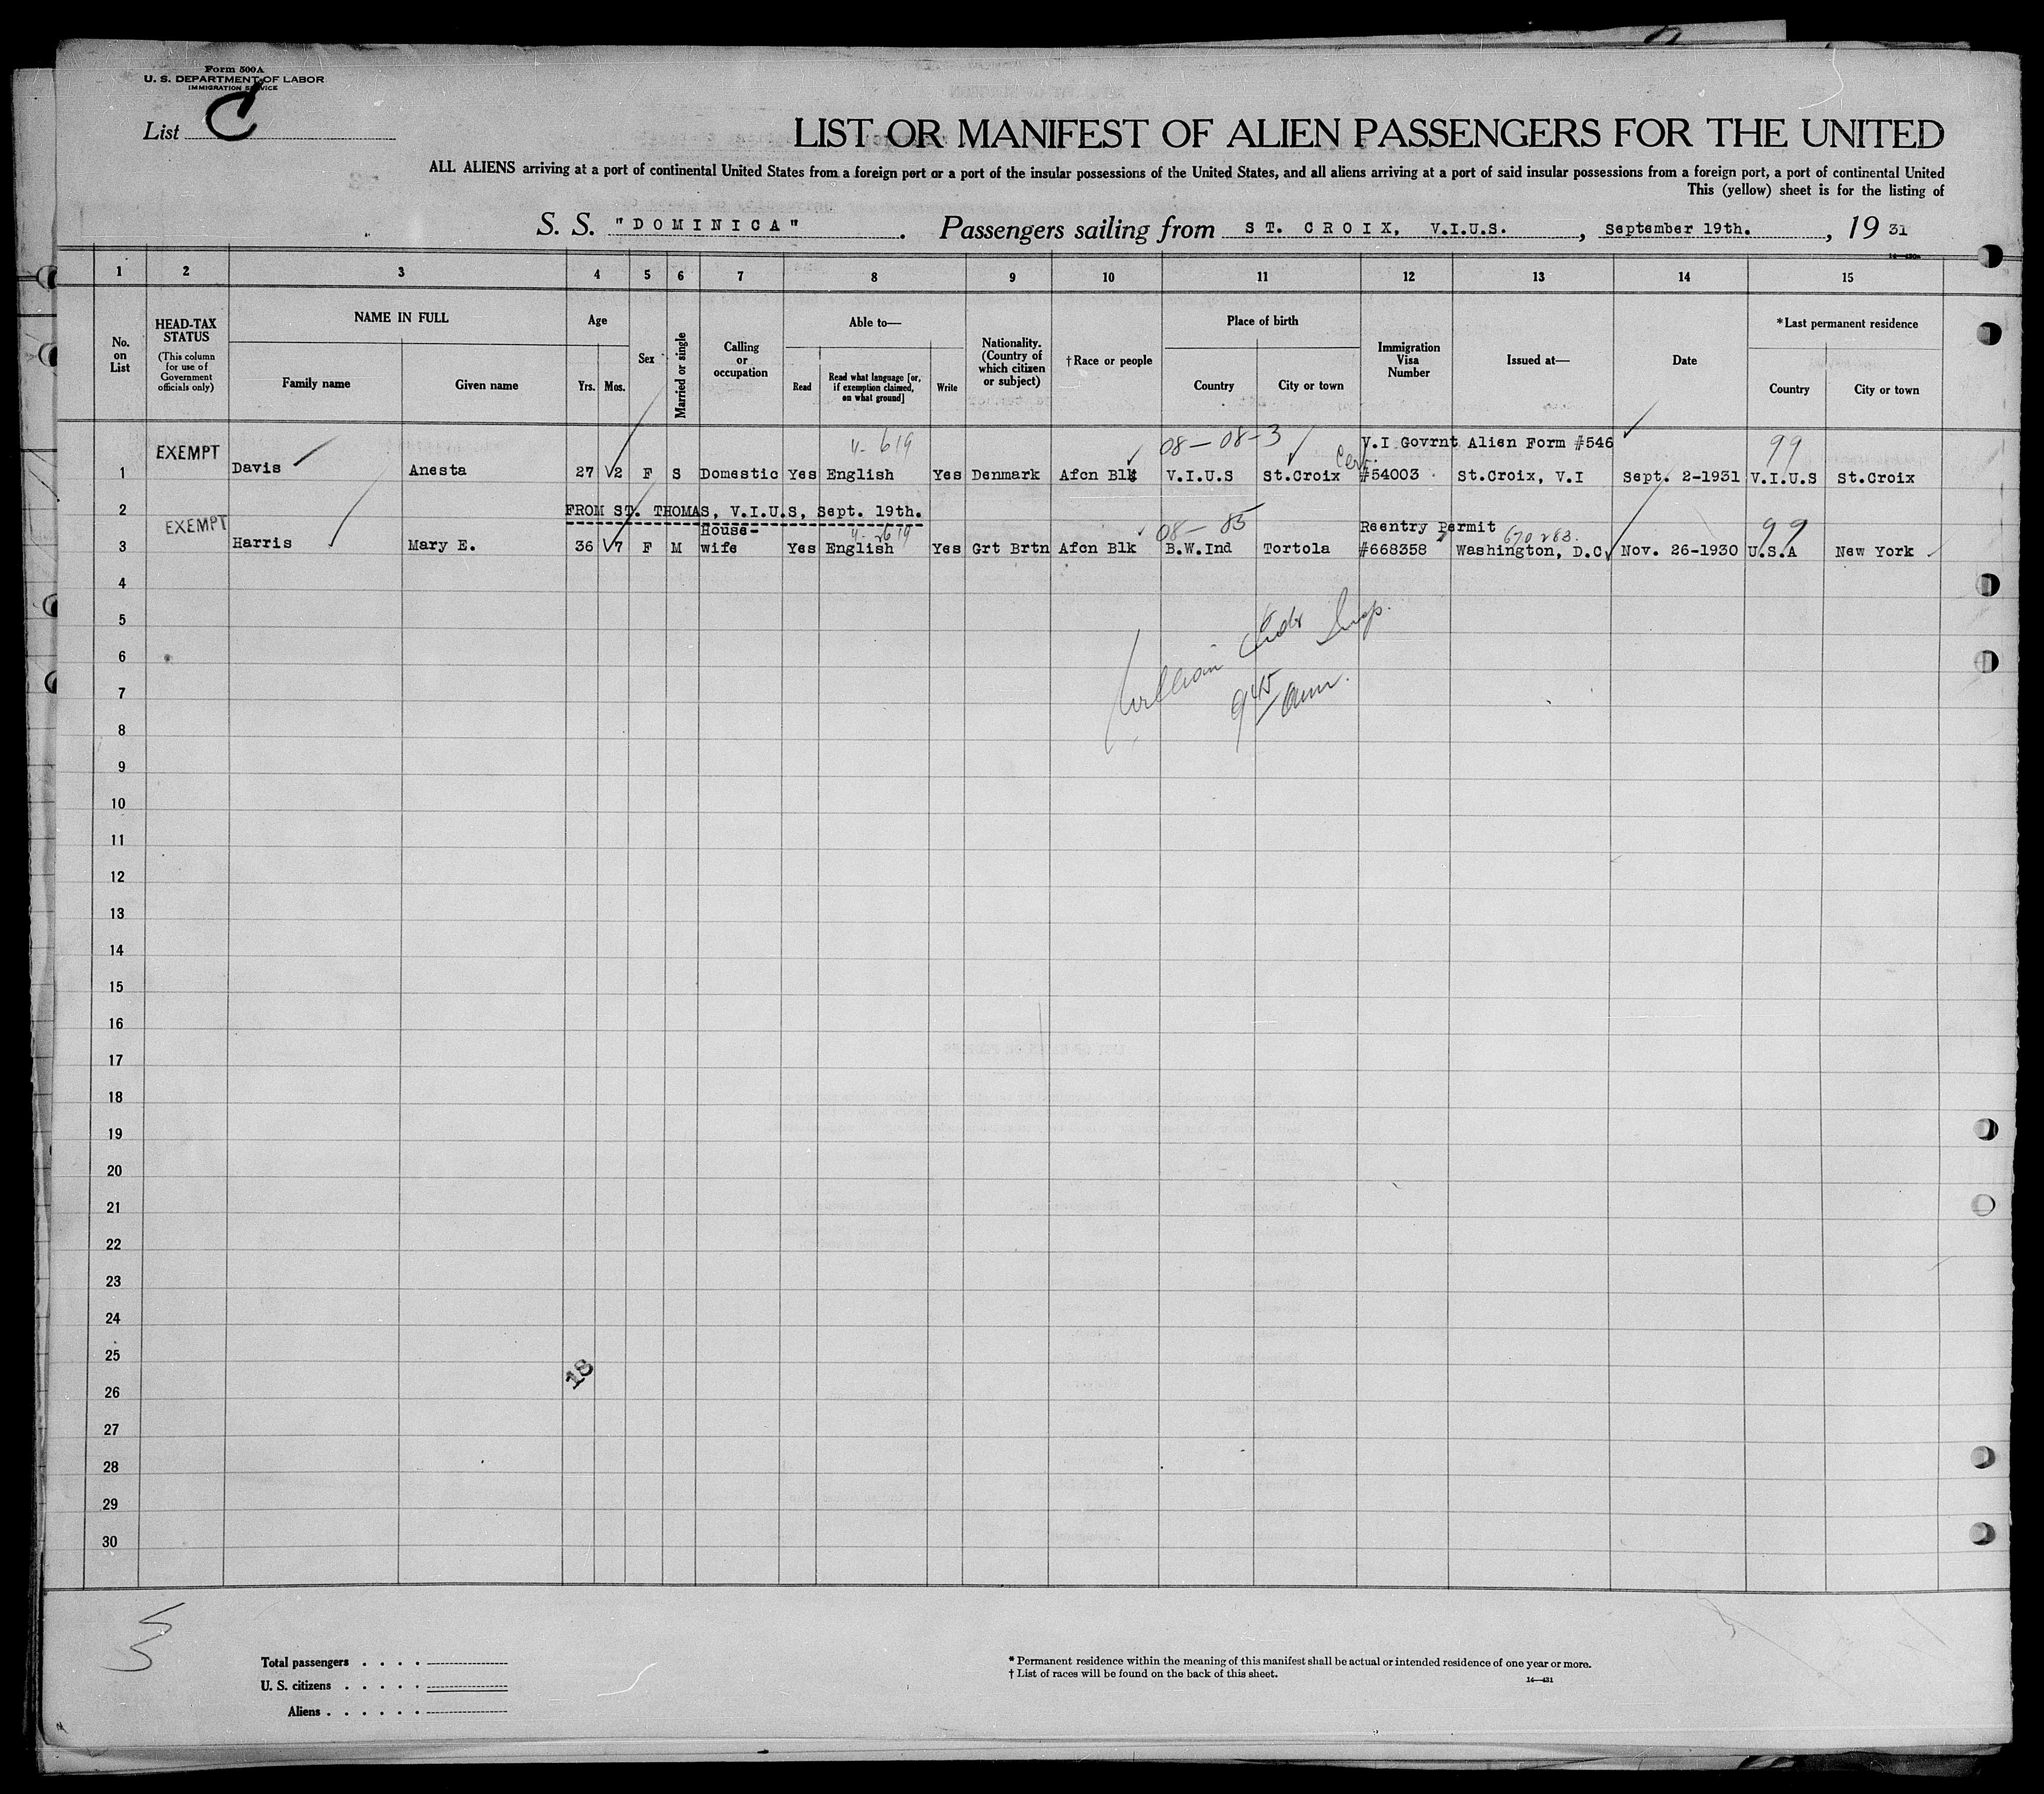 Form 500A
U. S. DEPARTMENT OF LABOR
IMMIGRATION SERVICE
List C
LIST OR MANIFEST OF ALIEN PASSENGERS FOR THE UNITED
ALL ALIENS arriving at a port of continental United States from a foreign port or a port of the insular possessions of the United States, and all aliens arriving at a port of said insular possessions from a foreign port, a port of continental United
This (yellow) sheet is for the listing of
S. S. "DOMINICA". Passengers sailing from ST. CROIX, V.I.U.S., September 19th., 1931
1 2 3 4 5 6 7 8 9 10 11 12 13 14 15
No. on List
HEAD-TAX STATUS
(This column for use of Government officials only)
NAME IN FULL
Family name Given name
Age
Yrs. Mos.
Sex
Married or single
Calling or occupation
Able to—
Read Read what language [or, if exemption claimed, on what ground] Write
Nationality. (Country of which citizen or subject)
†Race or people
Place of birth
Country City or town
Immigration Visa Number
Issued at—
Date
*Last permanent residence
Country City or town
4-619 08-08-3 V.I Govrnt Alien Form #546 99
1 EXEMPT Davis Anesta 27 2 F S Domestic Yes English Yes Denmark Afcn Blk V.I.U.S St.Croix Cert. #54003 St.Croix, V.I Sept. 2-1931 V.I.U.S St.Croix
2 FROM ST. THOMAS, V.I.U.S, Sept. 19th.
08-85 Reentry Permit 670283. 99
3 EXEMPT Harris Mary E. 36 7 F M House-wife Yes English Yes Grt Brtn Afcn Blk B.W.Ind Tortola #668358 Washington, D.C. Nov. 26-1930 U.S.A New York
4
5
William Insp.
6
7
9 45 am.
8
9
10
11
12
13
14
15
16
17
18
19
20
21
22
23
24
25
18
26
27
28
29
30
Total passengers . . . .
U. S. citizens . . . . .
Aliens . . . . . .
* Permanent residence within the meaning of this manifest shall be actual or intended residence of one year or more.
† List of races will be found on the back of this sheet.
14—431